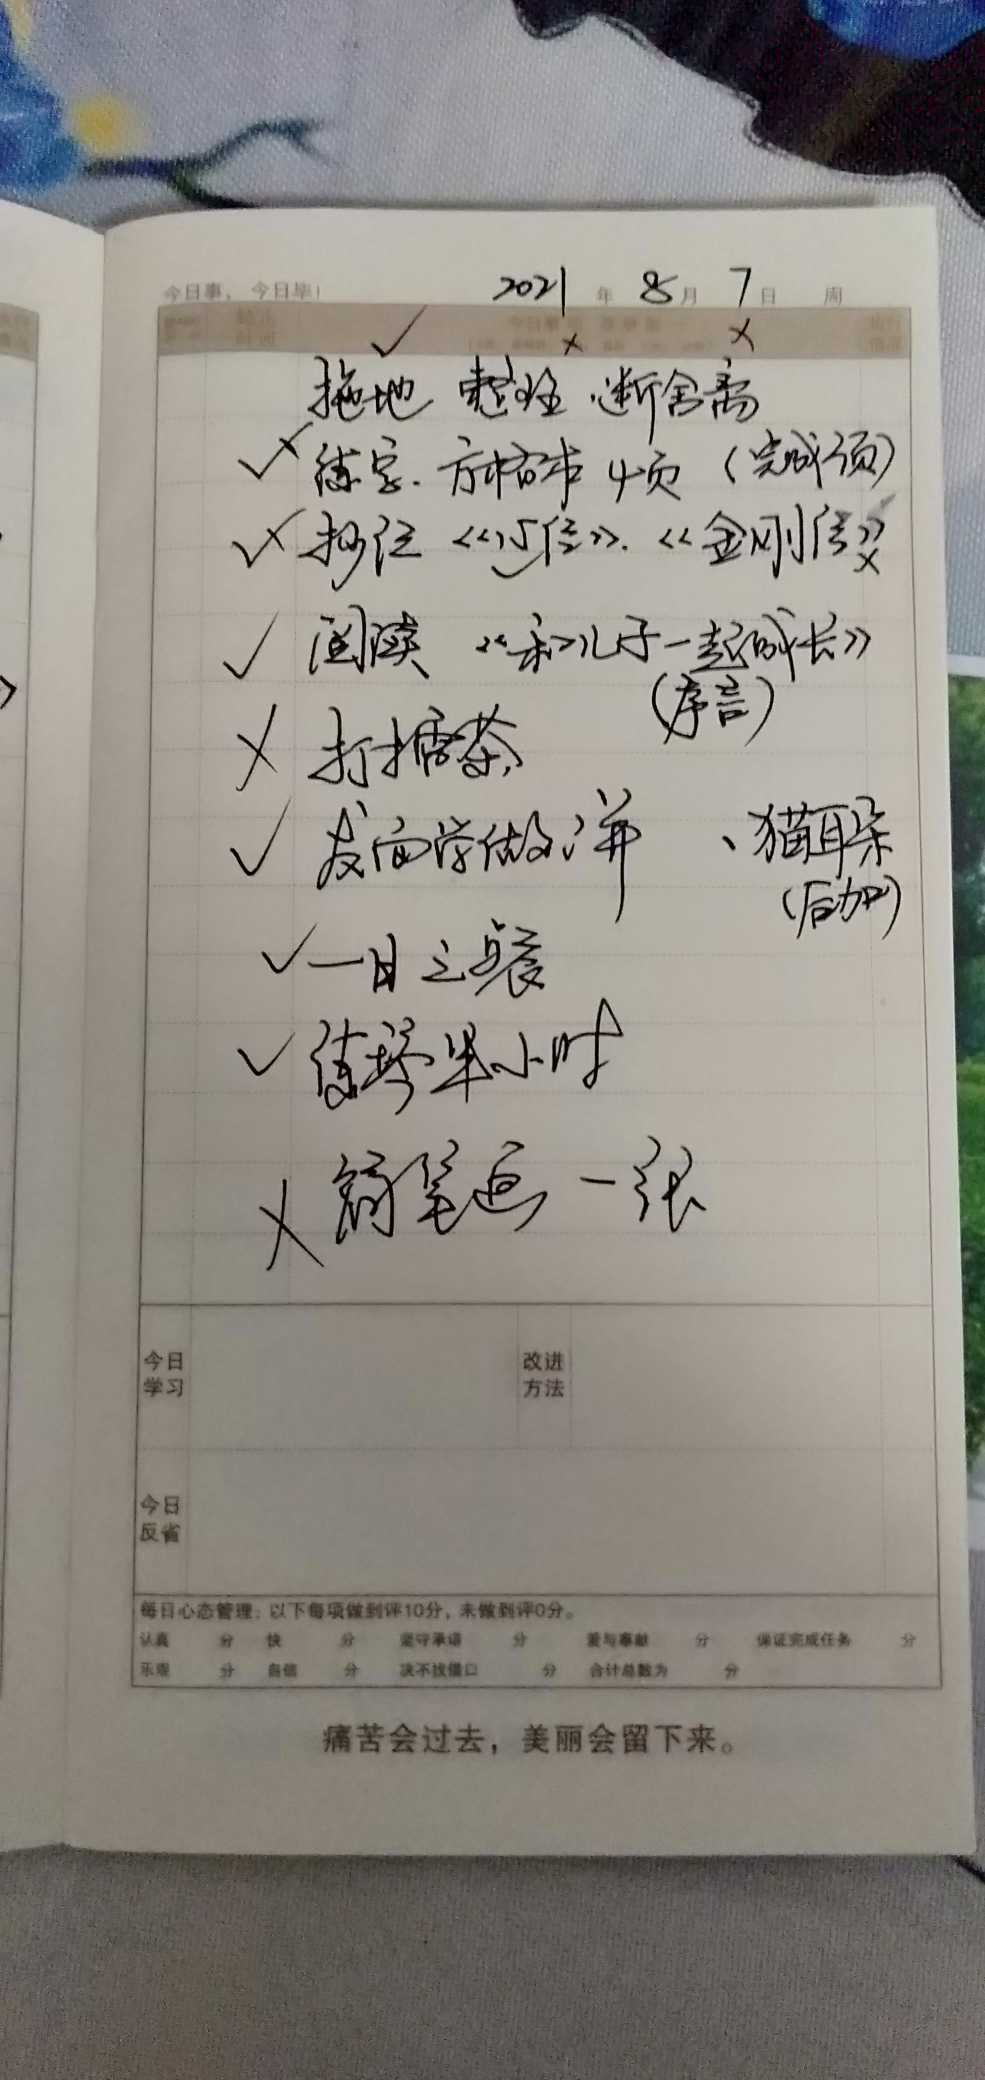 今日事，今日毕！ 2021 年 8 月 7 日 周
✓ × ×
拖地 整理 断舍离
练字. 方格本 4页 (完成1页)
× 抄经 《心经》. 《金刚经》 ×
✓ 阅读 《和儿子一起成长》
(序言)
× 打擂茶
✓ 发面学做饼 、猫耳朵
(后加)
✓ 一日之晨
✓ 练琴半小时
× 简笔画 一张
今日学习 改进方法
今日反省
每日心态管理：以下每项做到评10分，未做到评0分。
认真 分 快 分 坚守承诺 分 爱与奉献 分 保证完成任务 分
乐观 分 自信 分 决不找借口 分 合计总数为 分
痛苦会过去，美丽会留下来。